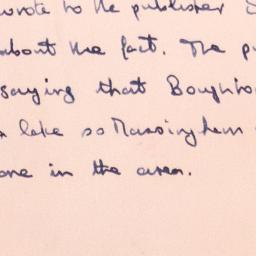 wrote to the publisher
about the fact. The
saying that
lake so Massingham
one in the area.